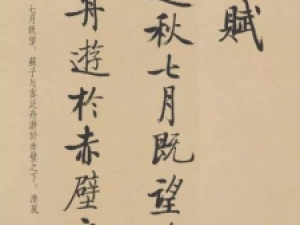 賦
秋七月既望
舟遊於赤壁
七月既望、蘇子与客泛舟游於赤壁之下。清風